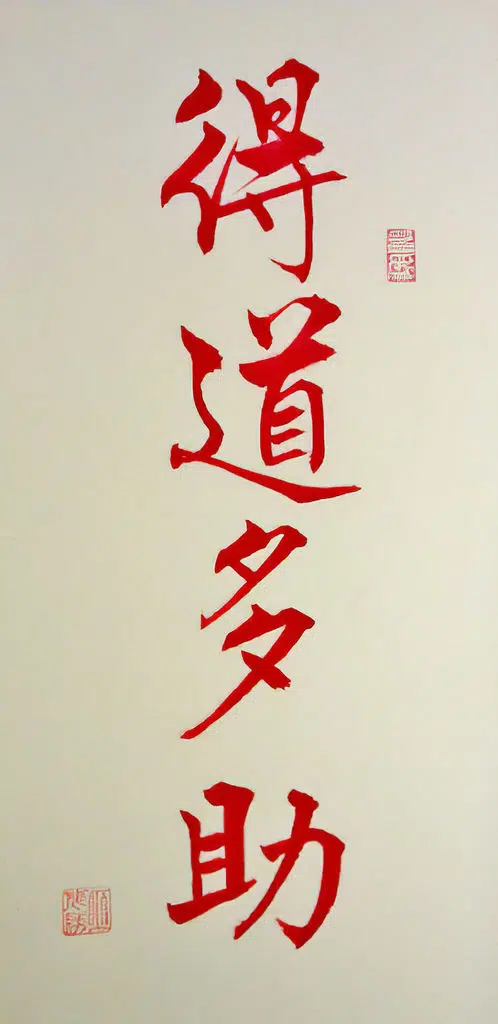 得道多助